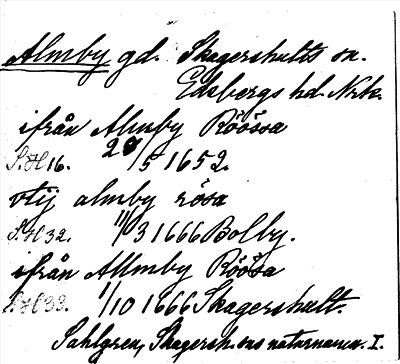 Almby gd. Skagershults sn.
Edsbergs hd. Nrk.
ifrån Almby Röössa
S.H 16. 28/5 1652.
vtij almby rösa
S.H 32. 11/3 1666 Bolby.
ifrån Allmby Röösa
S.H 33. 1/10 1666 Skagershult.
Sahlgren, Skagersh. sns naturnamn. I.